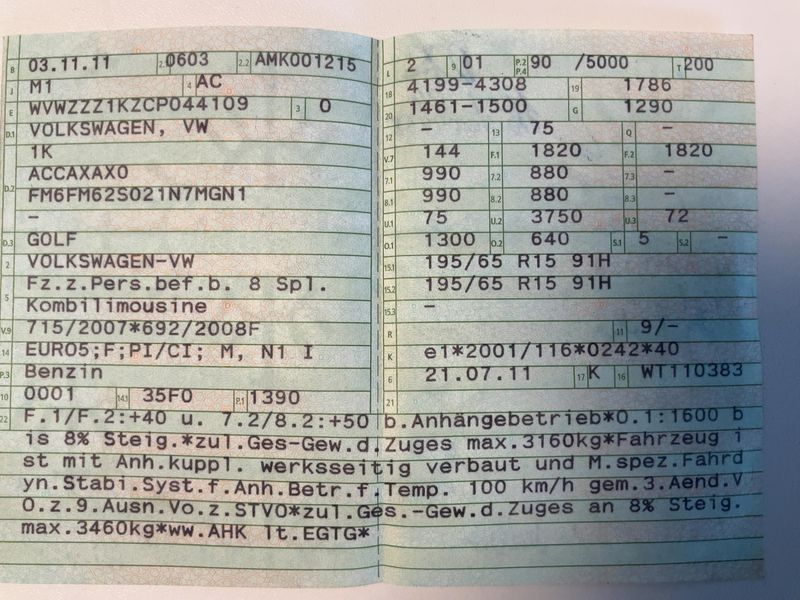 B 03.11.11 2.1 0603 2.2 AMK001215
J M1 4 AC
E WVWZZZ1KZCP044109 3 0
D.1 VOLKSWAGEN, VW
1K
D.2 ACCAXAX0
FM6FM62S021N7MGN1
–
D.3 GOLF
2 VOLKSWAGEN-VW
5 Fz.z.Pers.bef.b. 8 Spl.
Kombilimousine
V.9 715/2007*692/2008F
14 EURO5;F;PI/CI; M, N1 I
P.3 Benzin
10 0001 14.1 35F0 P.1 1390
L 2 9 01 P.2 P.4 90 /5000 T 200
18 4199-4308 19 1786
20 1461-1500 G 1290
12 – 13 75 Q –
V.7 144 F.1 1820 F.2 1820
7.1 990 7.2 880 7.3 –
8.1 990 8.2 880 8.3 –
U.1 75 U.2 3750 U.3 72
O.1 1300 O.2 640 S.1 5 S.2 –
15.1 195/65 R15 91H
15.2 195/65 R15 91H
15.3 –
R 11 9/-
K e1*2001/116*0242*40
6 21.07.11 17 K 16 WT110383
21
22 F.1/F.2:+40 u. 7.2/8.2:+50 b.Anhängebetrieb*O.1:1600 b
is 8% Steig.*zul.Ges-Gew.d.Zuges max.3160kg*Fahrzeug i
st mit Anh.kuppl. werksseitig verbaut und M.spez.Fahrd
yn.Stabi.Syst.f.Anh.Betr.f.Temp. 100 km/h gem.3.Aend.V
O.z.9.Ausn.Vo.z.STVO*zul.Ges.-Gew.d.Zuges an 8% Steig.
max.3460kg*ww.AHK lt.EGTG*